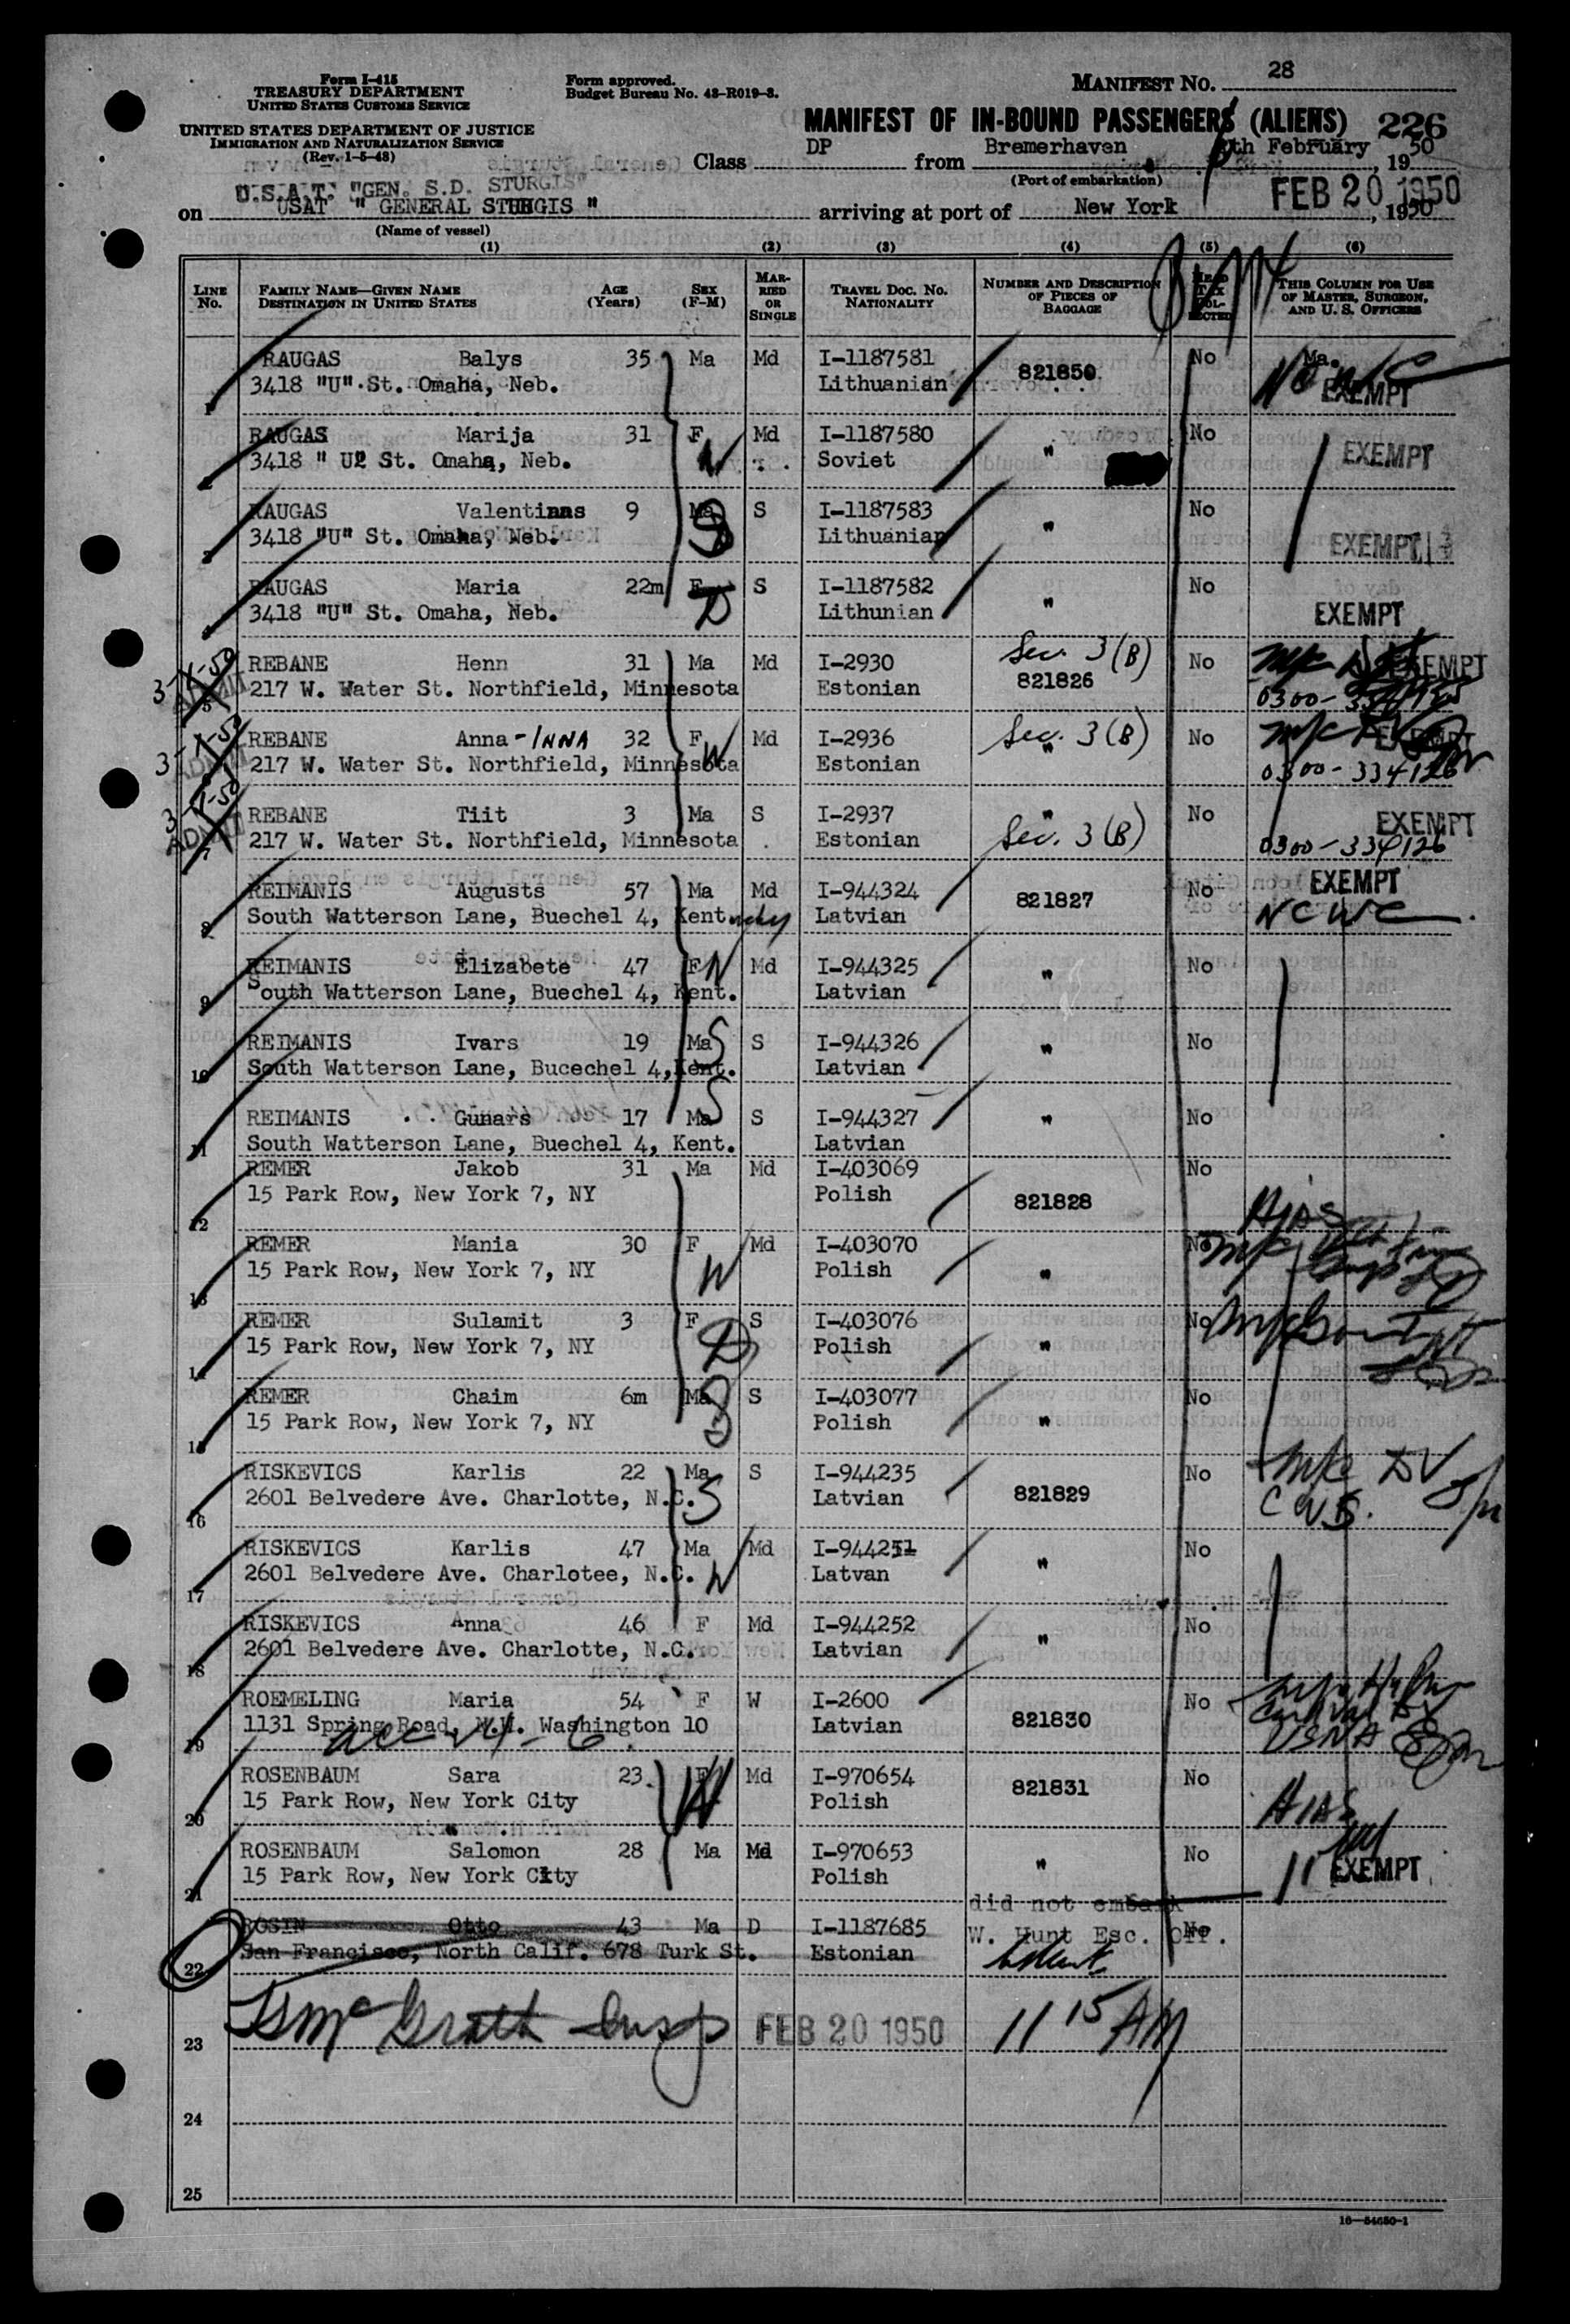 Form I-415
TREASURY DEPARTMENT
UNITED STATES CUSTOMS SERVICE
UNITED STATES DEPARTMENT OF JUSTICE
IMMIGRATION AND NATURALIZATION SERVICE
(Rev. 1-5-48)
Form approved.
Budget Bureau No. 43-R019-3.
MANIFEST No. 28
MANIFEST OF IN-BOUND PASSENGERS (ALIENS) 226
Class DP from Bremerhaven th February, 1950
(Port of embarkation)
U.S.A.T. "GEN. S.D. STURGIS"
on USAT " GENERAL STURGIS " arriving at port of New York FEB 20 1950, 1950
(Name of vessel)
(1) (2) (3) (4) (5) (6)
LINE No. FAMILY NAME—GIVEN NAME DESTINATION IN UNITED STATES AGE (Years) SEX (F-M) MARRIED OR SINGLE TRAVEL DOC. No. NATIONALITY NUMBER AND DESCRIPTION OF PIECES OF BAGGAGE HEAD TAX COLLECTED THIS COLUMN FOR USE OF MASTER, SURGEON, AND U. S. OFFICERS
1 RAUGAS Balys 35 Ma Md I-1187581 821850 No Ma.
3418 "U" St. Omaha, Neb. Lithuanian EXEMPT
2 RAUGAS Marija 31 F Md I-1187580 " No
3418 " U" St. Omaha, Neb. W Soviet EXEMPT
3 RAUGAS Valentinas 9 Ma S I-1187583 " No
3418 "U" St. Omaha, Neb. S Lithuanian EXEMPT
4 RAUGAS Maria 22m F S I-1187582 " No
3418 "U" St. Omaha, Neb. D Lithunian EXEMPT
5 REBANE Henn 31 Ma Md I-2930 Sec. 3(B) No EXEMPT
3-1-50 ADMIT 217 W. Water St. Northfield, Minnesota Estonian 821826 0300-334125
6 REBANE Anna-INNA 32 F W Md I-2936 Sec. 3(B) " No EXEMPT
3-1-50 ADMIT 217 W. Water St. Northfield, Minnesota Estonian 0300-334126
7 REBANE Tiit 3 Ma S I-2937 " No EXEMPT
3-1-50 ADMIT 217 W. Water St. Northfield, Minnesota Estonian Sec. 3(B) 0300-334126
8 REIMANIS Augusts 57 Ma Md I-944324 821827 No EXEMPT
South Watterson Lane, Buechel 4, Kentucky Latvian NCWC
9 REIMANIS Elizabete 47 F W Md I-944325 " No
South Watterson Lane, Buechel 4, Kent. Latvian
10 REIMANIS Ivars 19 Ma S S I-944326 " No
South Watterson Lane, Bucechel 4, Kent. Latvian
11 REIMANIS Gunars 17 Ma S S I-944327 " No
South Watterson Lane, Buechel 4, Kent. Latvian
12 REMER Jakob 31 Ma Md I-403069 No
15 Park Row, New York 7, NY Polish 821828 HIAS
13 REMER Mania 30 F Md I-403070 No
15 Park Row, New York 7, NY W Polish "
14 REMER Sulamit 3 F S I-403076 No
15 Park Row, New York 7, NY D Polish "
15 REMER Chaim 6m Ma S I-403077 No
15 Park Row, New York 7, NY S Polish "
16 RISKEVICS Karlis 22 Ma S I-944235 No
2601 Belvedere Ave. Charlotte, N.C. S Latvian 821829
17 RISKEVICS Karlis 47 Ma Md I-944251 " No
2601 Belvedere Ave. Charlotee, N.C. W Latvan
18 RISKEVICS Anna 46 F Md I-944252 " No
2601 Belvedere Ave. Charlotte, N.C. Latvian
19 ROEMELING Maria 54 F W I-2600 No
1131 Spring Road, N.W. Washington 10 Latvian 821830 USNA
20 ROSENBAUM Sara 23 F W Md I-970654 821831 No
15 Park Row, New York City Polish HIAS
21 ROSENBAUM Salomon 28 Ma Md I-970653 " No
15 Park Row, New York City Polish EXEMPT
did not embark
22 ROSIN Otto 43 Ma D I-1187685 W. Hunt Esc. Off. No
San Francisco, North Calif. 678 Turk St. Estonian
23 McGrath Insp FEB 20 1950 11 15 AM
24
25
16—54650-1